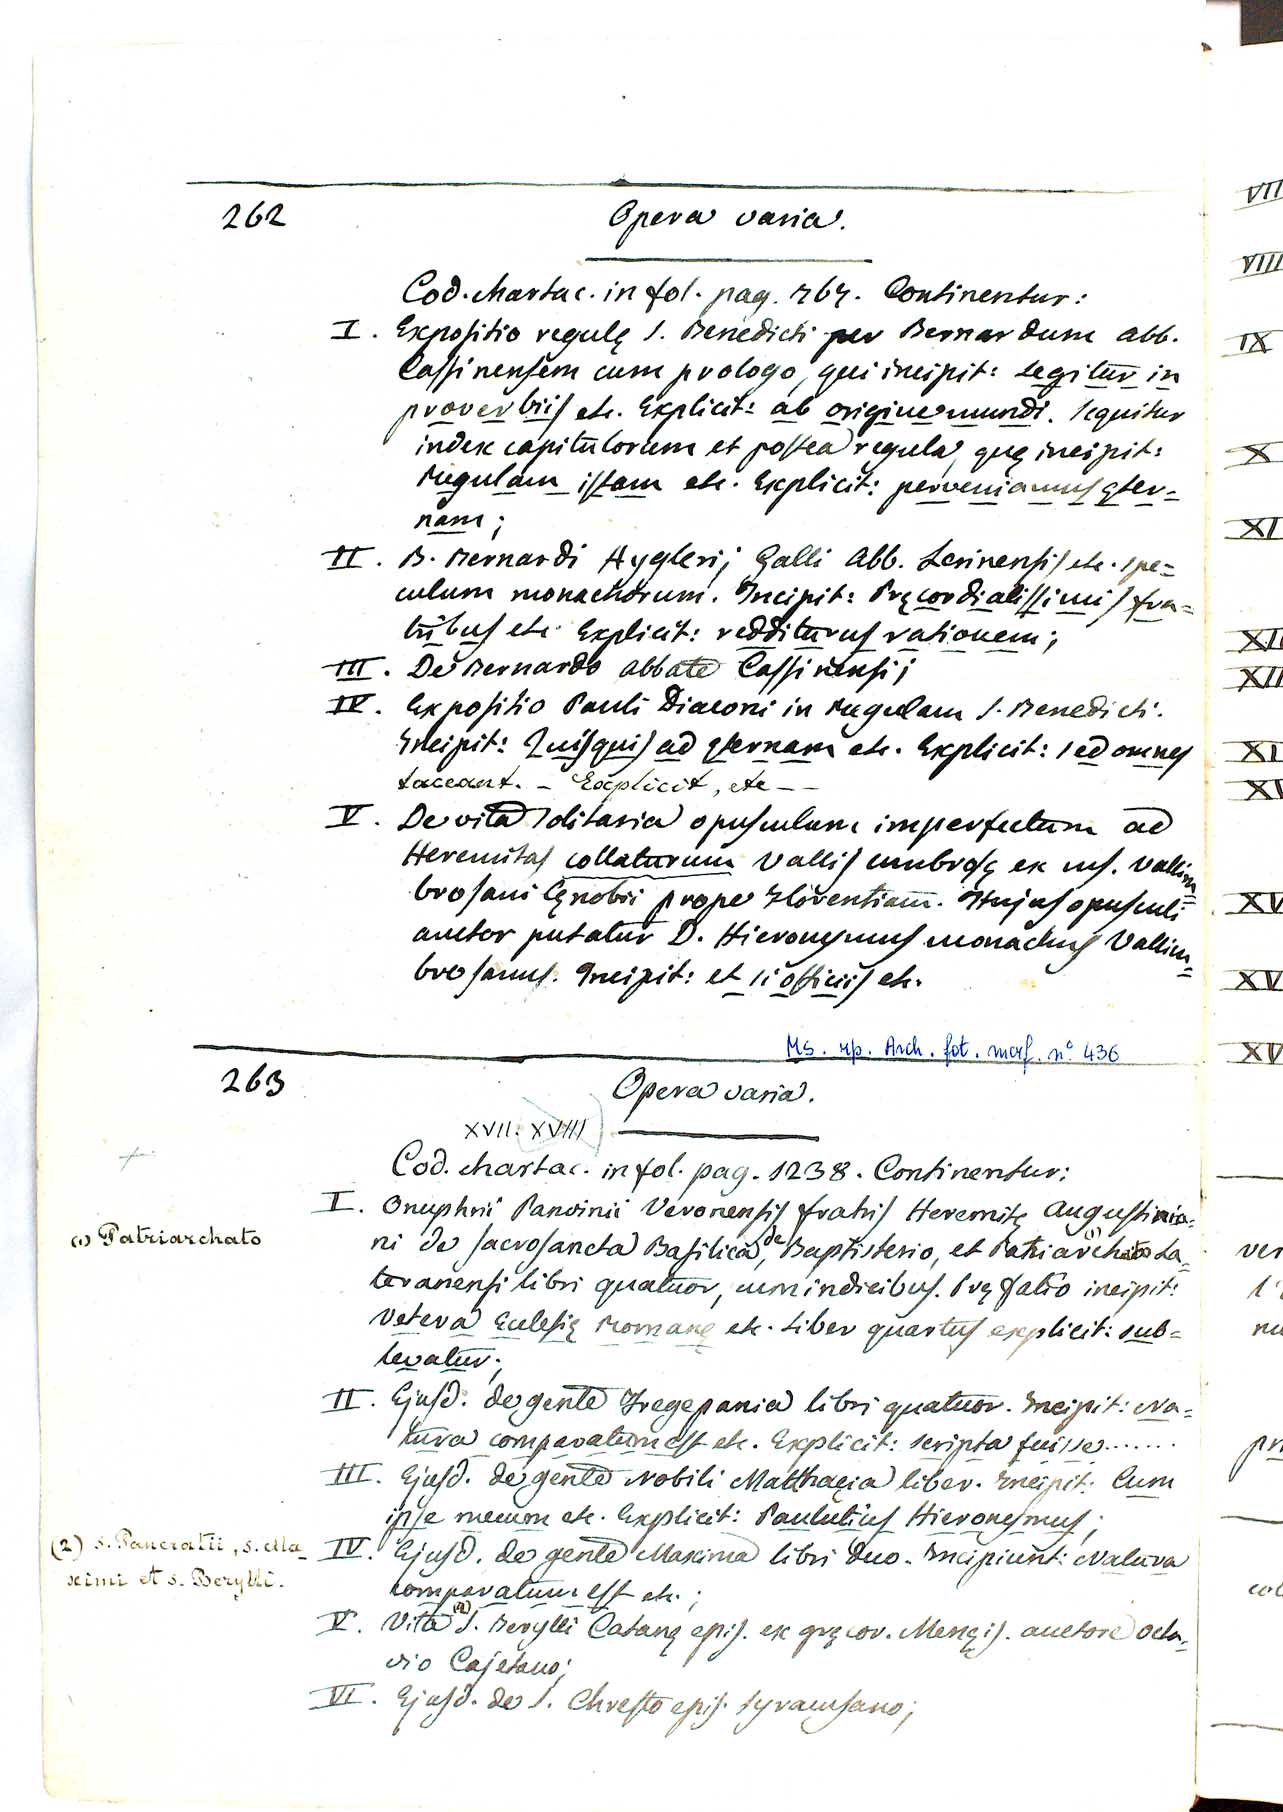 262
Opera varia.
Cod. chartac. in fol. pag. 767. Continentur:
I. Expositio regulę S. Benedicti per Bernardum abb.
Cassinensem cum prologo, qui incipit: legitur in
proverbiis etc. Explicit: ab origine mundi. Sequitur
index capitulorum et postea regula, quę incipit:
Regulam istam etc. Explicit: perveniamus ęter=
nam;
II. B. Bernardi Hyglerij Galli Abb. Lerinensis etc. spe=
culum monachorum. Incipit: Pręcordialissimis fra=
tribus etc. Explicit: redditurus rationem;
III. De Bernardo abbate Cassinensi;
IV. Expositio Pauli Diaconi in Regulam S. Benedicti.
Incipit: Quisquis ad ęternam etc. Explicit: sed omnes
taceant. – Explicit, etc – –
V. De vita solitaria opusculum imperfectum ad
Heremitas collaturum Vallis umbrosę ex ms. Vallim=
brosani Cęnobii prope Florentiam. Hujus opusculi
auctor putatur D. Hieronymus monachus Vallim=
brosanus. Incipit: et si officiis etc.
Ms. rp. Arch. fot. marf. n° 436
263
Opera varia.
XVII. XVIII
Cod. chartac. in fol. pag. 1238. Continentur:
I. Onuphrii Panvinii Veronensis fratris Heremitę Augustinia=
ni de sacrosancta Basilica, de Baptisterio, et Patriarchato (1) La=
teranensi libri quatuor, cum indicibus. Pręfatio incipit:
Vetera Eclesię Romanę etc. Liber quartus explicit: sub=
levatur;
(1) Patriarchato
II. Ejusd. de gente Fregepania libri quatuor. Incipit: Na=
tura comparatum est etc. Explicit: scripta fuisse.......
III. Ejusd. de gente Nobili Matthaeia liber. Incipit: Cum
ipse mecum etc. Explicit: Paulutius Hieronymus;
IV. Ejusd. de gente Maxima libri duo. Incipiunt: Natura
comparatum est etc.;
(2) S. Pancratii, S. Ma-
ximi et S. Berylli.
V. Vita (2) S. Berylli Catanę epis. ex gręcor. Menęis. auctore Octa=
vio Cajetano;
VI. Ejusd. de S. Chresto epis. Syracusano;
VII
VIII
IX
X
XI